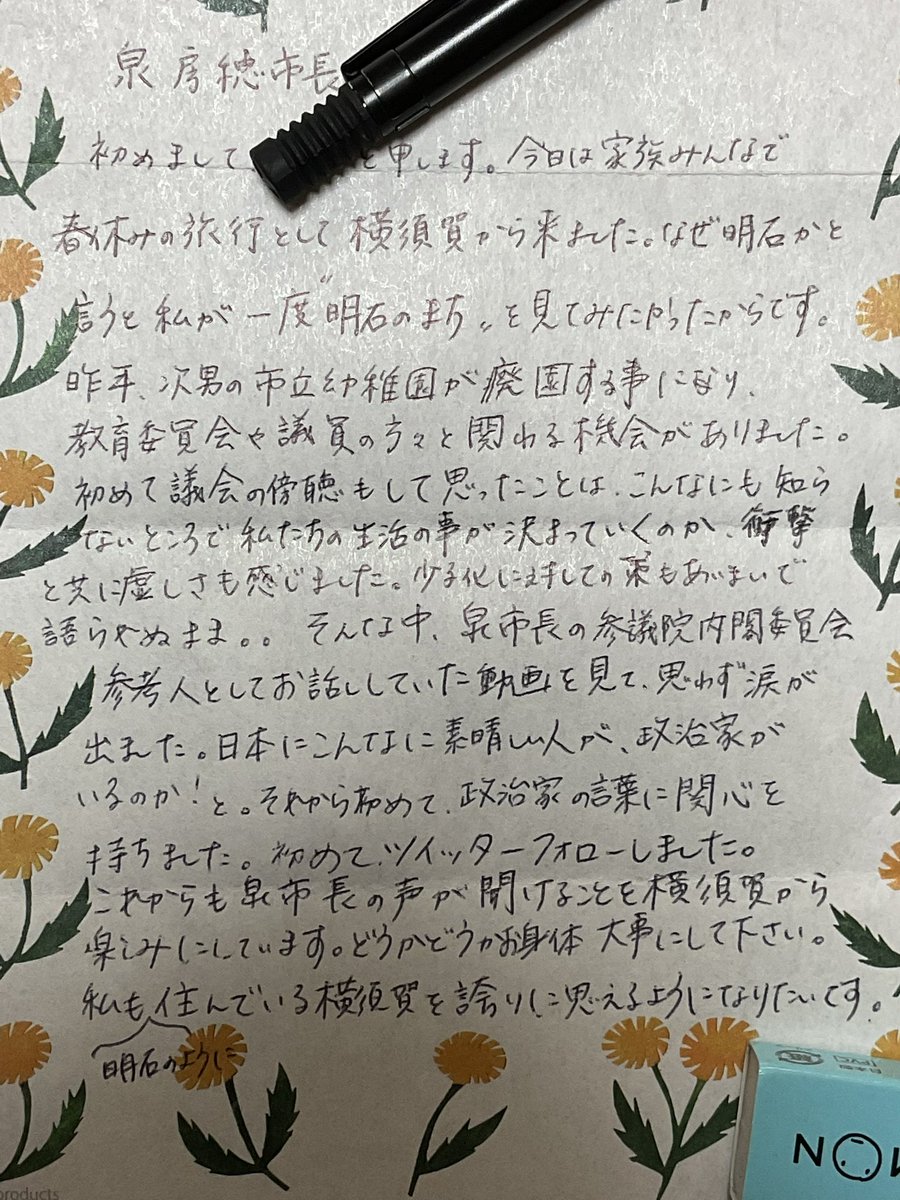 泉房穂市長
初めまして、と申します。今日は家族みんなで
春休みの旅行として横須賀から来ました。なぜ明石かと
言うと私が一度“明石のまち„を見てみたかったからです。
昨年、次男の市立幼稚園が廃園する事になり、
教育委員会や議員の方々と関わる機会がありました。
初めて議会の傍聴もして思ったことは、こんなにも知ら
ないところで私たちの生活の事が決まっていくのか、衝撃
と共に虚しさも感じました。少子化に対しての策もあいまいで
語られぬまま。。そんな中、泉市長の参議院内閣委員会
参考人としてお話ししていた動画を見て、思わず涙が
出ました。日本にこんなに素晴しい人が、政治家が
いるのか!と。それから初めて、政治家の言葉に関心を
持ちました。初めて、ツイッターフォローしました。
これからも泉市長の声が聞けることを横須賀から
楽しみにしています。どうかどうかお身体大事にして下さい。
私も住んでいる横須賀を誇りに思えるようになりたいです。
明石のように
products
NO